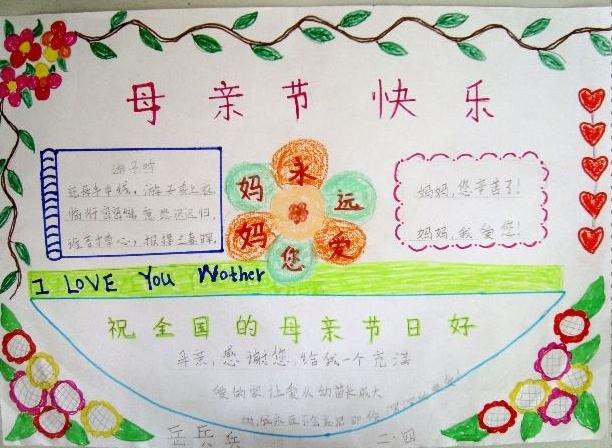 母亲节快乐
游子吟
慈母手中线，游子身上衣
临行密密缝，意恐迟迟归，
谁言寸草心，报得三春晖。
妈妈永远爱您
妈妈，您辛苦了！
妈妈，我爱您！
I LOVE You Mother
祝全国的母亲节日好
母亲，感谢您，给我一个充满
爱的家让爱从幼苗长成大
二.四